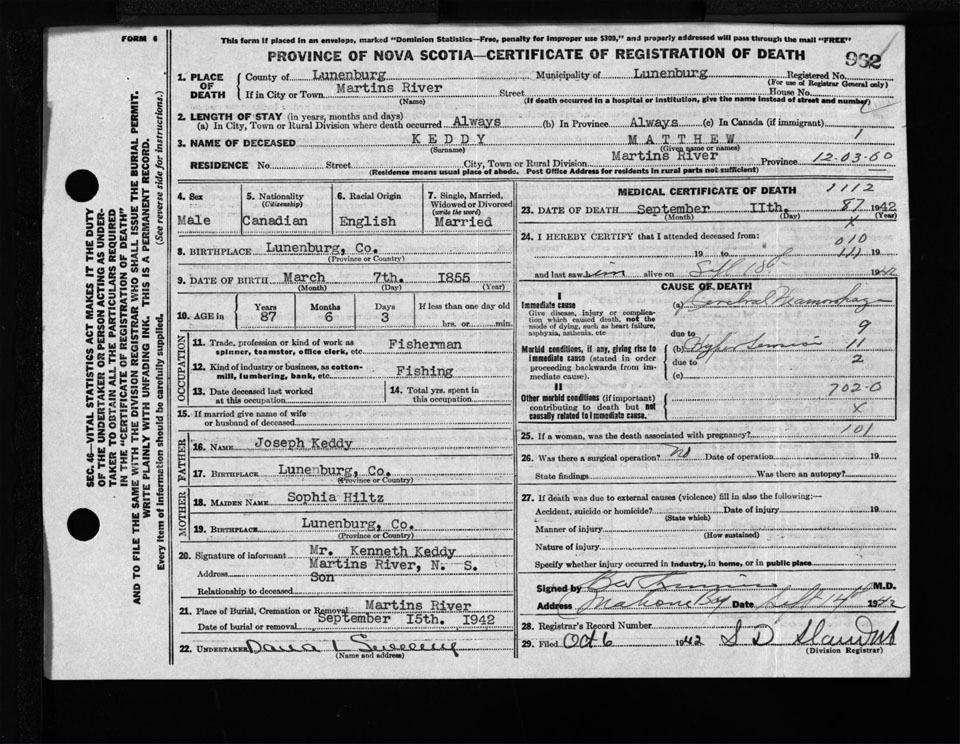 FORM 6
This form if placed in an envelope, marked "Dominion Statistics—Free, penalty for improper use $300," and properly addressed will pass through the mail "FREE"
PROVINCE OF NOVA SCOTIA—CERTIFICATE OF REGISTRATION OF DEATH
962
1. PLACE OF DEATH
County of Lunenburg Municipality of Lunenburg Registered No.
(For use of Registrar General only)
If in City or Town Martins River Street House No.
(Name) (If death occurred in a hospital or institution, give the name instead of street and number)
2. LENGTH OF STAY (in years, months and days)
(a) In City, Town or Rural Division where death occurred Always (b) In Province Always (c) In Canada (if immigrant)
3. NAME OF DECEASED KEDDY MATTHEW 1
(Surname) (Given name or names)
RESIDENCE No. Street City, Town or Rural Division Martins River Province 12-03-60
(Residence means usual place of abode. Post Office Address for residents in rural parts not sufficient)
SEC. 46—VITAL STATISTICS ACT MAKES IT THE DUTY
OF THE UNDERTAKER OR PERSON ACTING AS UNDER-
TAKER TO OBTAIN ALL THE PARTICULARS REQUIRED
IN THE "CERTIFICATE OF REGISTRATION OF DEATH"
AND TO FILE THE SAME WITH THE DIVISION REGISTRAR WHO SHALL ISSUE THE BURIAL PERMIT.
WRITE PLAINLY WITH UNFADING INK. THIS IS A PERMANENT RECORD.
Every item of information should be carefully supplied. (See reverse side for instructions.)
4. Sex
Male
5. Nationality
(Citizenship)
Canadian
6. Racial Origin
English
7. Single, Married,
Widowed or Divorced
(write the word)
Married
8. BIRTHPLACE Lunenburg, Co.
(Province or Country)
9. DATE OF BIRTH March 7th. 1855
(Month) (Day) (Year)
10. AGE in
Years Months Days If less than one day old
87 6 3 hrs. or min.
OCCUPATION
11. Trade, profession or kind of work as Fisherman
spinner, teamster, office clerk, etc.
12. Kind of industry or business, as cotton-
mill, lumbering, bank, etc. Fishing
13. Date deceased last worked
at this occupation
14. Total yrs. spent in
this occupation
15. If married give name of wife
or husband of deceased
FATHER
16. NAME Joseph Keddy
17. BIRTHPLACE Lunenburg, Co.
(Province or Country)
MOTHER
18. MAIDEN NAME Sophia Hiltz
19. BIRTHPLACE Lunenburg, Co.
(Province or Country)
20. Signature of informant Mr. Kenneth Keddy
Address Martins River, N. S.
Relationship to deceased Son
21. Place of Burial, Cremation or Removal Martins River
Date of burial or removal September 15th. 1942
22. UNDERTAKER Dana L
(Name and address)
MEDICAL CERTIFICATE OF DEATH 1112
23. DATE OF DEATH September IIth. 87 1942
(Month) (Day) (Year)
x
24. I HEREBY CERTIFY that I attended deceased from:
010
19 to 19
and last saw him alive on Sept 1942
CAUSE OF DEATH
I
Immediate cause
Give disease, injury or complica-
tion which caused death, not the
mode of dying, such as heart failure,
asphyxia, asthenia, etc
(a) Cerebral Hamorrhage
due to 9
Morbid conditions, if any, giving rise to
immediate cause (stated in order
proceeding backwards from im-
mediate cause).
(b) Hypertension 11
due to 2
(c)
II
Other morbid conditions (if important)
contributing to death but not
causally related to immediate cause.
702-0
x
25. If a woman, was the death associated with pregnancy? 101
26. Was there a surgical operation? no Date of operation 19
State findings Was there an autopsy?
27. If death was due to external causes (violence) fill in also the following:—
Accident, suicide or homicide? Date of injury 19
(State which)
Manner of injury
(How sustained)
Nature of injury
Specify whether injury occurred in industry, in home, or in public place
Signed by M.D.
Address Mahone Bay Date Sept 14th 1942
28. Registrar's Record Number
29. Filed Oct 6 1942 S D
(Division Registrar)